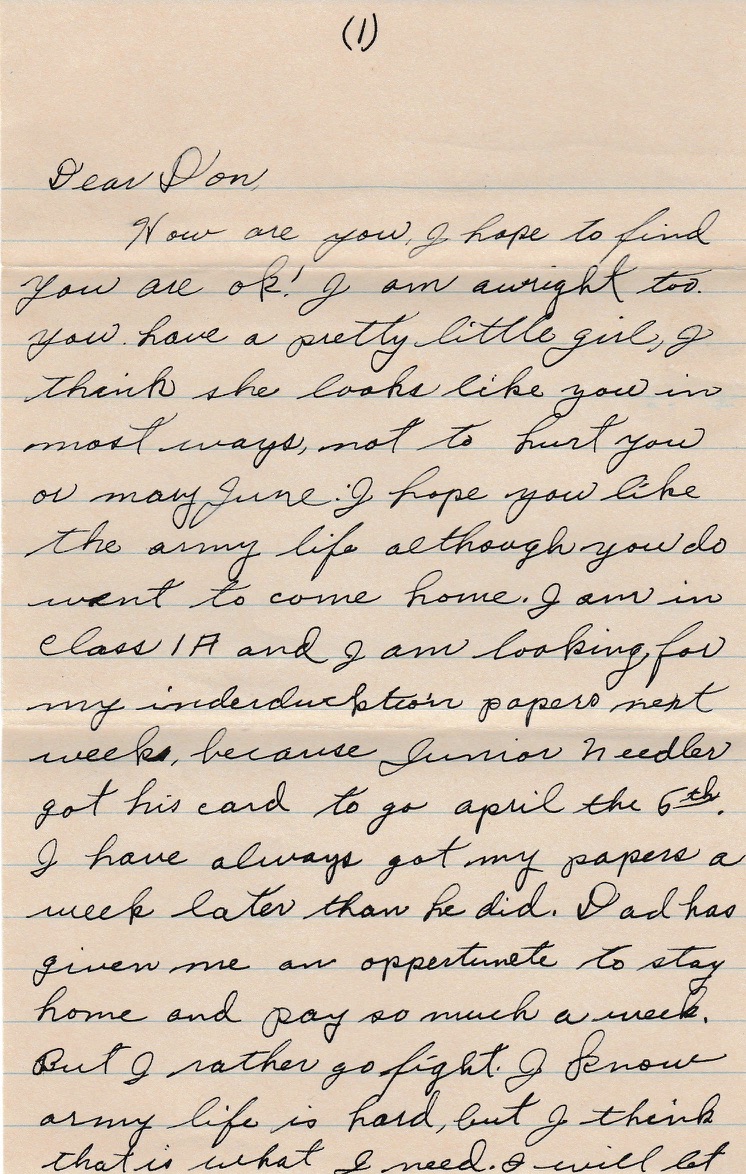 (1)
Dear Don,
How are you, I hope to find
you are ok! I am awright too.
you have a pretty little girl, I
think she looks like you in
most ways, not to hurt you
or mary June. I hope you like
the army life although you do
want to come home. I am in
class 1A and I am looking for
my inderducktion papers next
week, because Junior Needler
got his card to go april the 6th.
I have always got my papers a
week later than he did. Dad has
given me an oppertunete to stay
home and pay so much a week.
But I rather go fight. I know
army life is hard, but I think
that is what I need. I will let